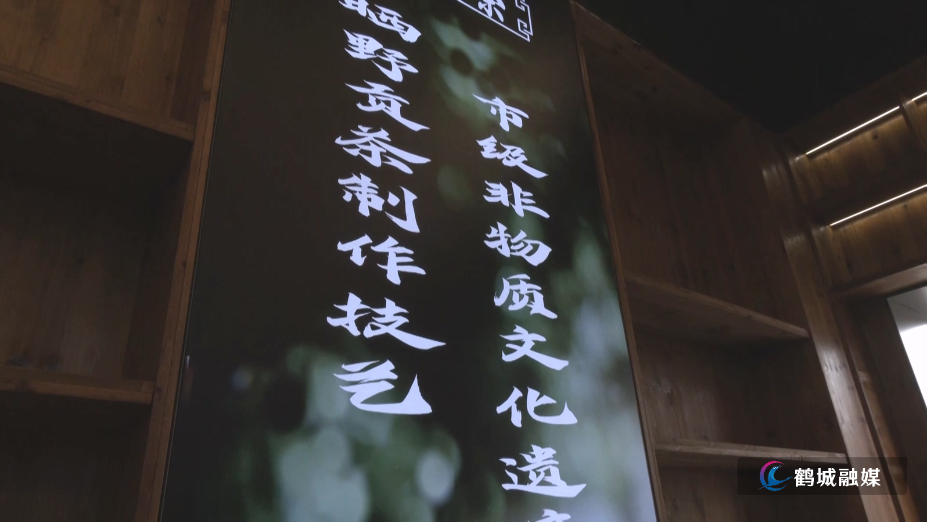 市级非物质文化遗
晒野贡茶制作技艺
鹤城融媒